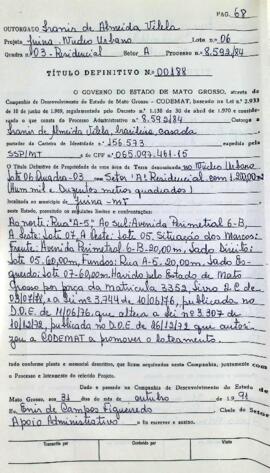 PAG. 68
OUTORGADO Iranir de Almeida Vilela
Projeto Juina - Nucleo Urbano Lote nº 06
Quadra nº 03 - Residencial Setor A Processo nº 8.592/84
TÍTULO DEFINITIVO N. 00188
O GOVERNO DO ESTADO DE MATO GROSSO, através da
Companhia de Desenvolvimento do Estado de Mato Grosso - CODEMAT, baseado na Lei nº 2.933
de junho de 1969, regulamentada pelo Decreto nº 1.138 de 30 de abril de 1970 e considerando
o que consta do Processo Administrativo nº 8.592/84 Outorga a
Iranir de Almeida Vilela, brasileira, casada
portador da Carteira de Identidade nº 156.573 expedida pela
SSP/MT e do CPF nº 065.097.461-15
o Título Definitivo de Propriedade de uma área de Terra denominada no Nucleo Urbano
Lote 06 Quadra-03 com Setor "A" Residencial com 1.200,00m2
(Hum mil e Duzentos metros quadrados)
localizado no município de Juina-MT
neste Estado, possuindo os seguintes limites e confrontações:
Ao norte: Rua "A-5" Ao Sul: Avenida Perimetral 6-B,
A Leste: Lote 07 A Oeste: Lote 05. Situação dos Marcos:
Frente: Avenida Perimetral 6-B-20,00m. Lado Direito:
Lote 05-60,00m, Fundos: Rua A-5. 20,00m. Lado Es-
querdo: Lote 07-60,00m. Havido pelo Estado de Mato
Grosso por força da matrícula 3352, Livro 2.E de
e a Lei nº 3.744 de 10/06/76, publicada no
D.O.E. de 11/06/76 que altera a Lei nº 3.307 de
publicada no D.O.E de 26/12/72 que autori-
zou a CODEMAT a promover o loteamento.
tudo conforme planta e memorial descritivo, que ficam arquivados nesta Companhia, juntamente com
o Processo e Loteamento do referido Projeto.
Dado e passado na Companhia de Desenvolvimento do Estado de
Mato Grosso, aos 31 dias de outubro de 1991
Eu Enir de Campos Figueiredo Chefe do Setor
Apoio Administrativo o fiz escrever e assino.
Transcrito por Conferido por Visto